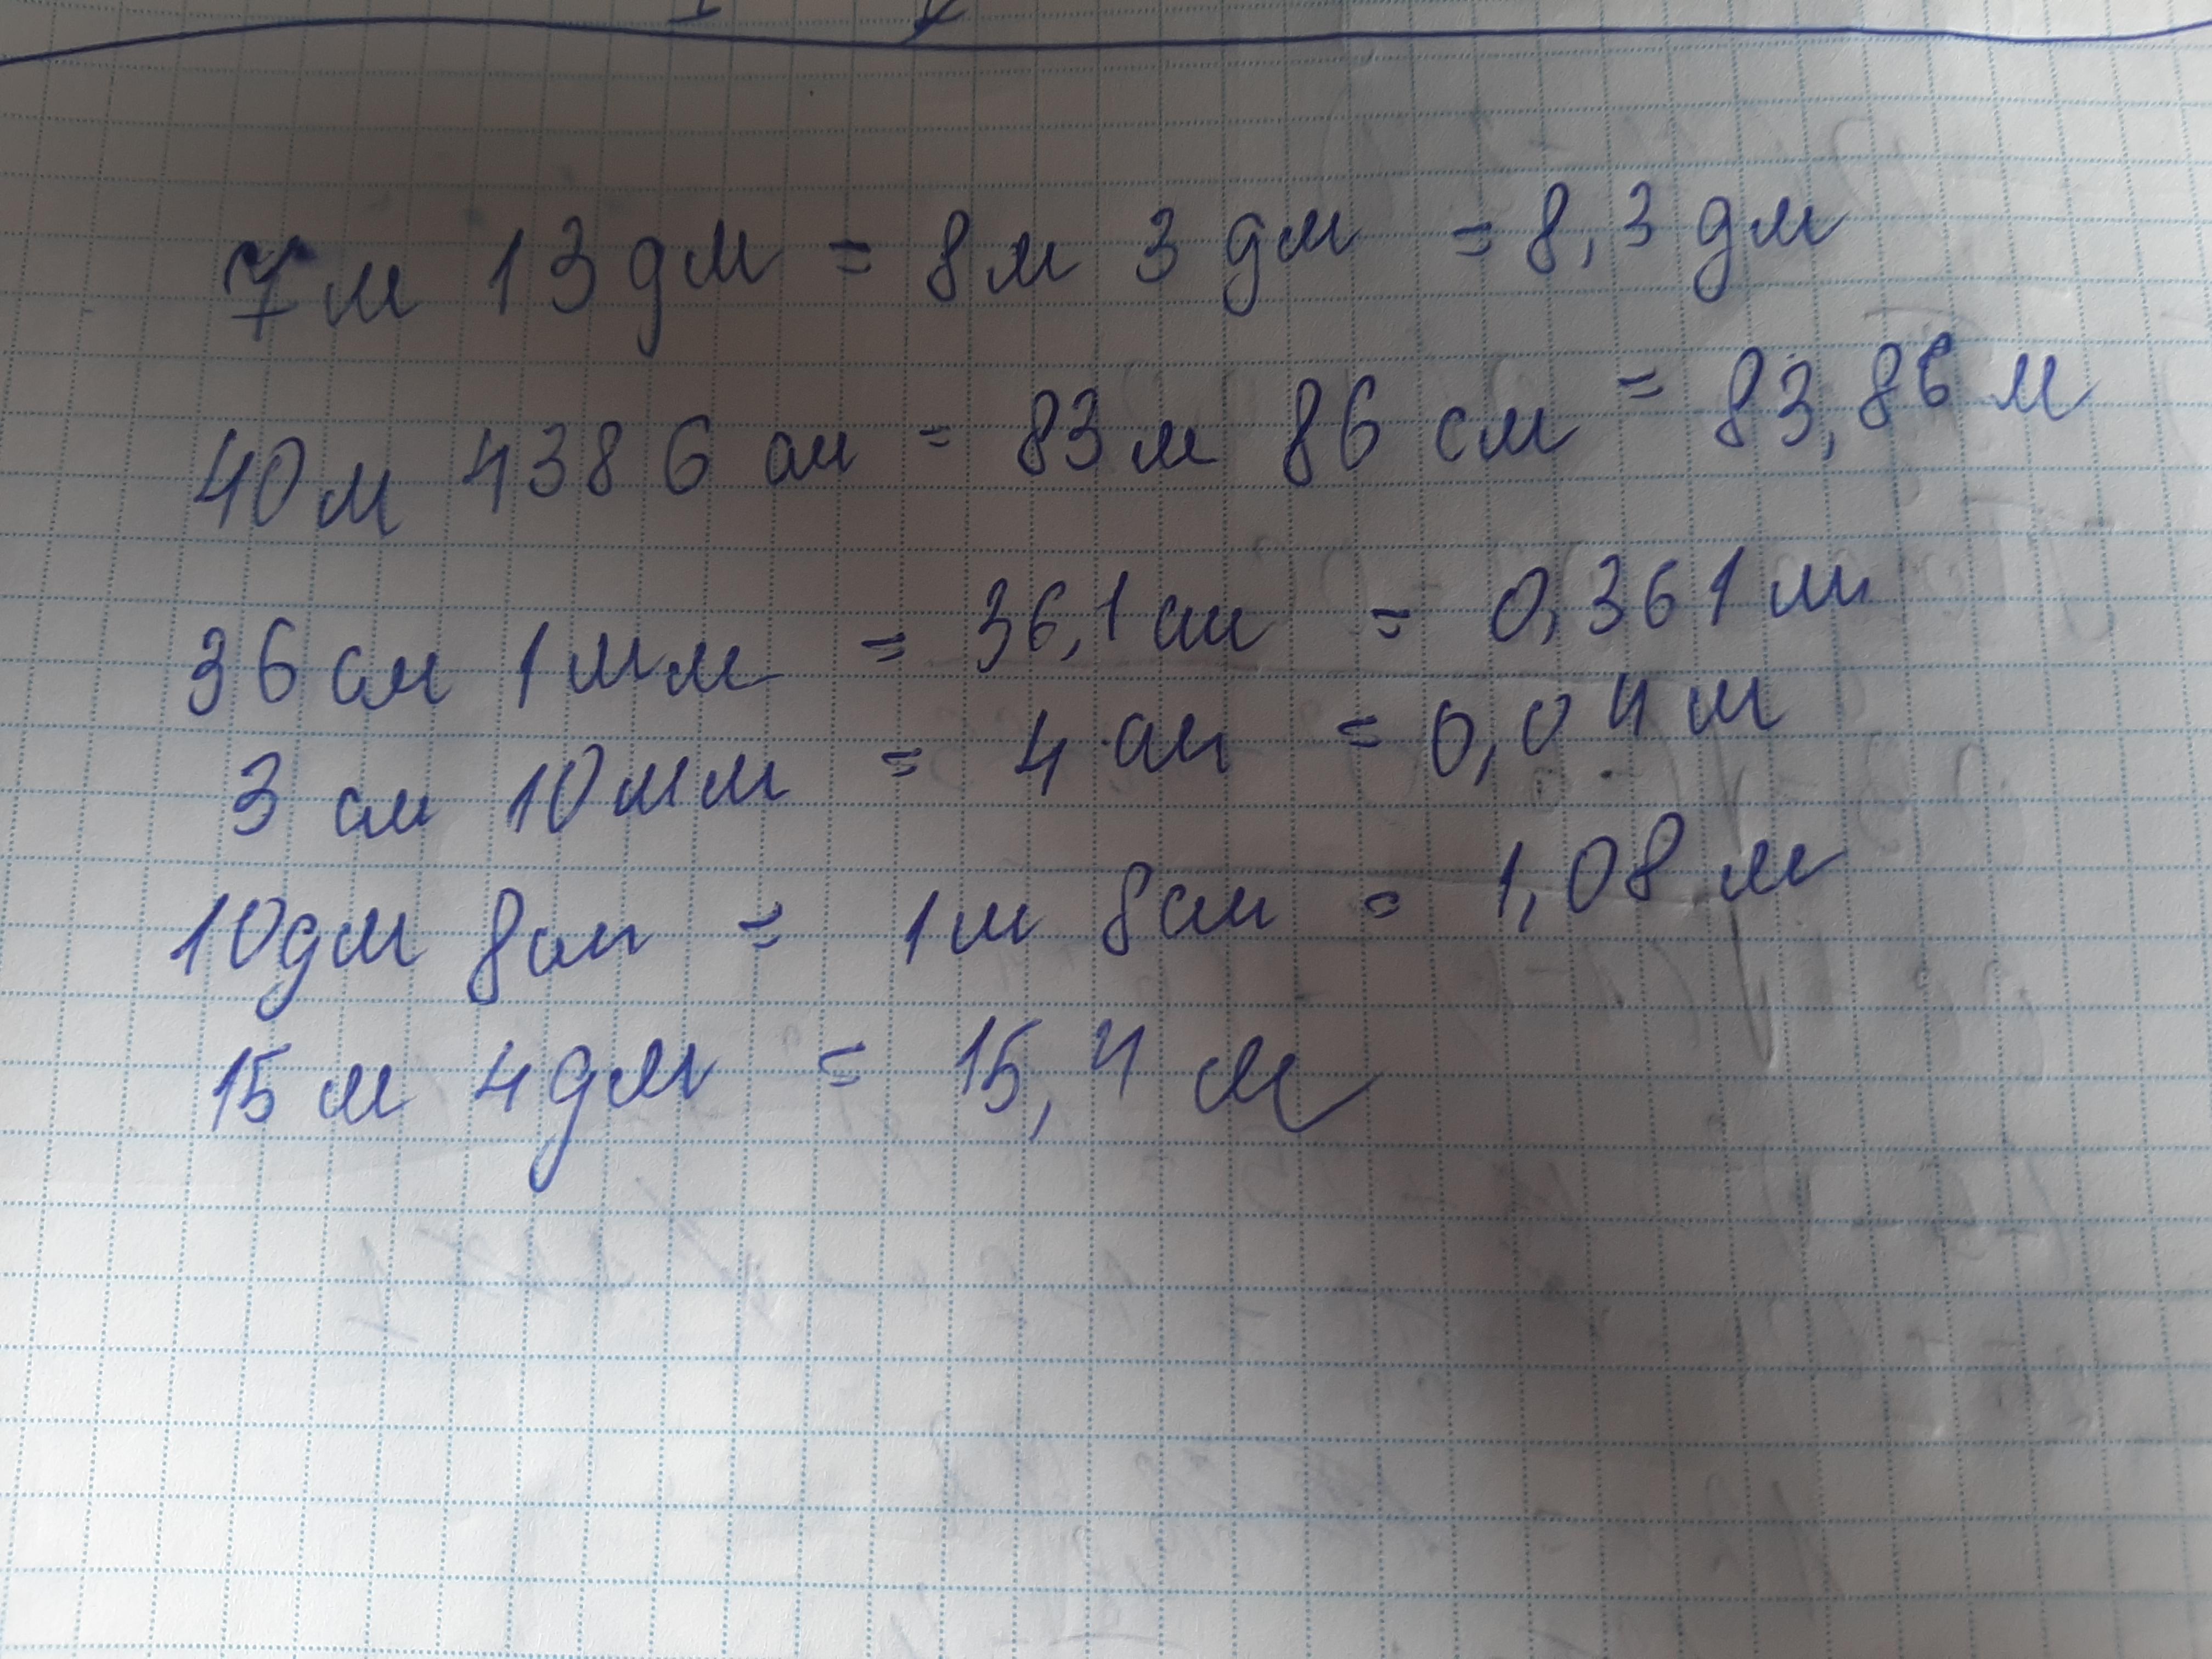 7м 13дм = 8м 3 дм = 8,3 дм
40м 4386 см = 83м 86 см = 83,86 м
36см 1мм = 36,1см = 0,361м
3 см 10мм = 4 см = 0,04м
10дм 8см = 1м 8см = 1,08 м
15м 4дм = 15,4 м